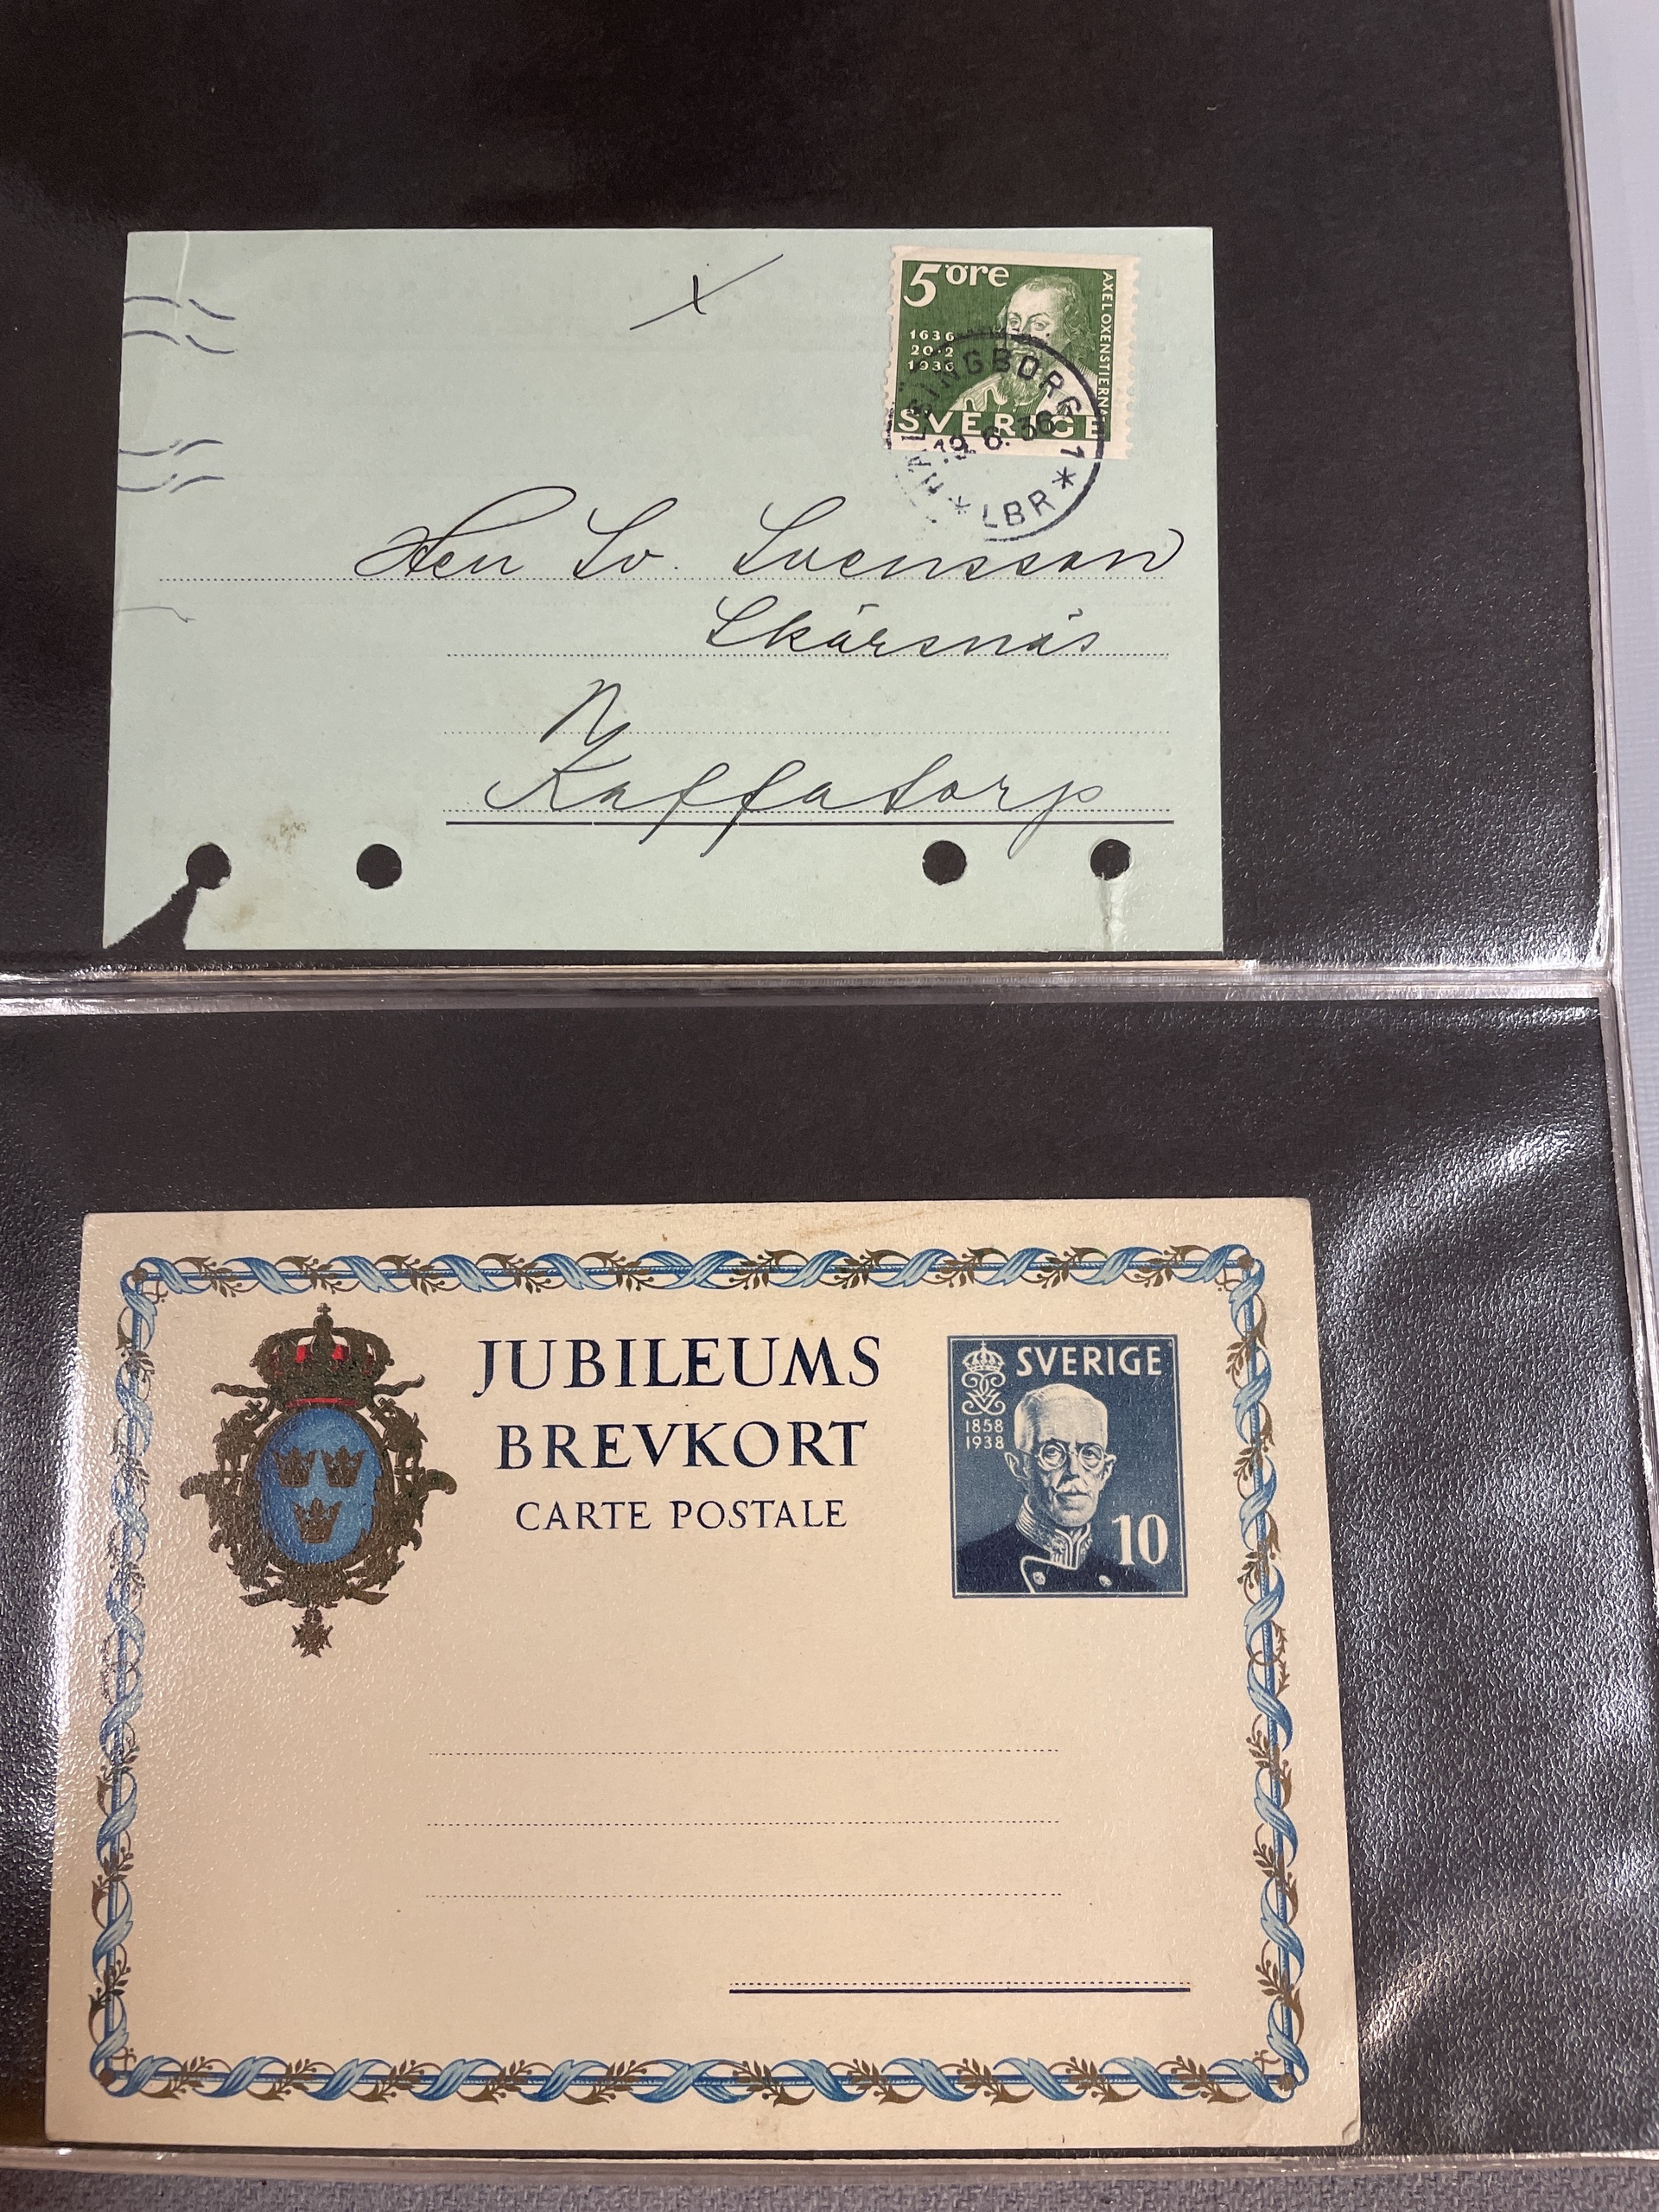 5 öre
AXEL OXENSTIERNA
1636
20·2
1936
SVERIGE
HÄLSINGBORG 1
19.6.36
* LBR *
Herr Sv. Svensson
Skärsnäs
N
Kaffatorp
JUBILEUMS
BREVKORT
CARTE POSTALE
SVERIGE
1858
1938
10